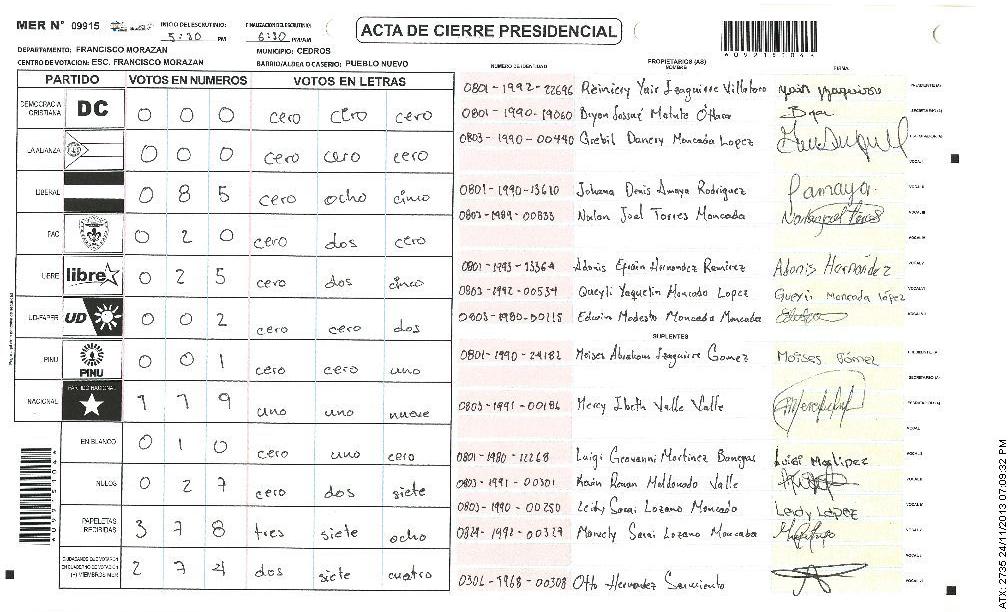 MER N° 09915 INICIO DEL ESCRUTINIO 5:30 PM FINALIZACION DEL ESCRUTINIO 6:30 PM/AM
ACTA DE CIERRE PRESIDENCIAL
DEPARTAMENTO: FRANCISCO MORAZAN MUNICIPIO: CEDROS
CENTRO DE VOTACION: ESC. FRANCISCO MORAZAN BARRIO/ALDEA O CASERIO: PUEBLO NUEVO
PARTIDO VOTOS EN NUMEROS VOTOS EN LETRAS
DEMOCRACIA CRISTIANA DC 0 0 0 cero cero cero
LA ALIANZA 0 0 0 cero cero cero
LIBERAL 0 8 5 cero ocho cinco
PAC 0 2 0 cero dos cero
LIBRE libre 0 2 5 cero dos cinco
UD-FAPER UD 0 0 2 cero cero dos
PINU PINU 0 0 1 cero cero uno
NACIONAL PARTIDO NACIONAL 1 1 9 uno uno nueve
EN BLANCO 0 1 0 cero uno cero
NULOS 0 2 7 cero dos siete
PAPELETAS RECIBIDAS 3 7 8 tres siete ocho
CIUDADANOS QUE VOTARON EN CUADERNO DE VOTACION (+) MIEMBROS MER 2 7 4 dos siete cuatro
NUMERO DE IDENTIDAD PROPIETARIOS (AS) NOMBRE FIRMA
0801-1992-22696 Yair Izaguirre PRESIDENTE (A)
0801-1990-19060 Bryon Josué Matute O'Hara SECRETARIO (A)
0803-1990-00440 Grebil Danery Moncada Lopez
0801-1990-13610 Johana Denis Amaya Rodriguez
0803-1989-00833 Joel Torres Moncada
0801-1993-13364 Adonis Efraín Hernandez Ramirez Adonis Hernández
0803-1992-00534 Queyli Yaquelin Moncada Lopez Queyli Moncada López
0803-1980-00215 Edwin Modesto Moncada Moncada
SUPLENTES
0801-1990-24182 Moises Abraham Izaguirre Gomez Moises Gómez PRESIDENTE (A)
SECRETARIO (A)
0803-1991-00186 Mercy Ibeth Valle Valle
0801-1980-12268 Luigi Geovanni Martinez Banegas
0803-1991-00301 Kevin Ronan Maldonado Valle
0803-1990-00250 Leidy Sarai Lozano Moncada Leidy López
0824-1992-00327 Sarai Lozano Moncada
0301-1968-00308 Otto Hernandez Sarmiento
ATX: 2735 24/11/2013 07:09:32 PM